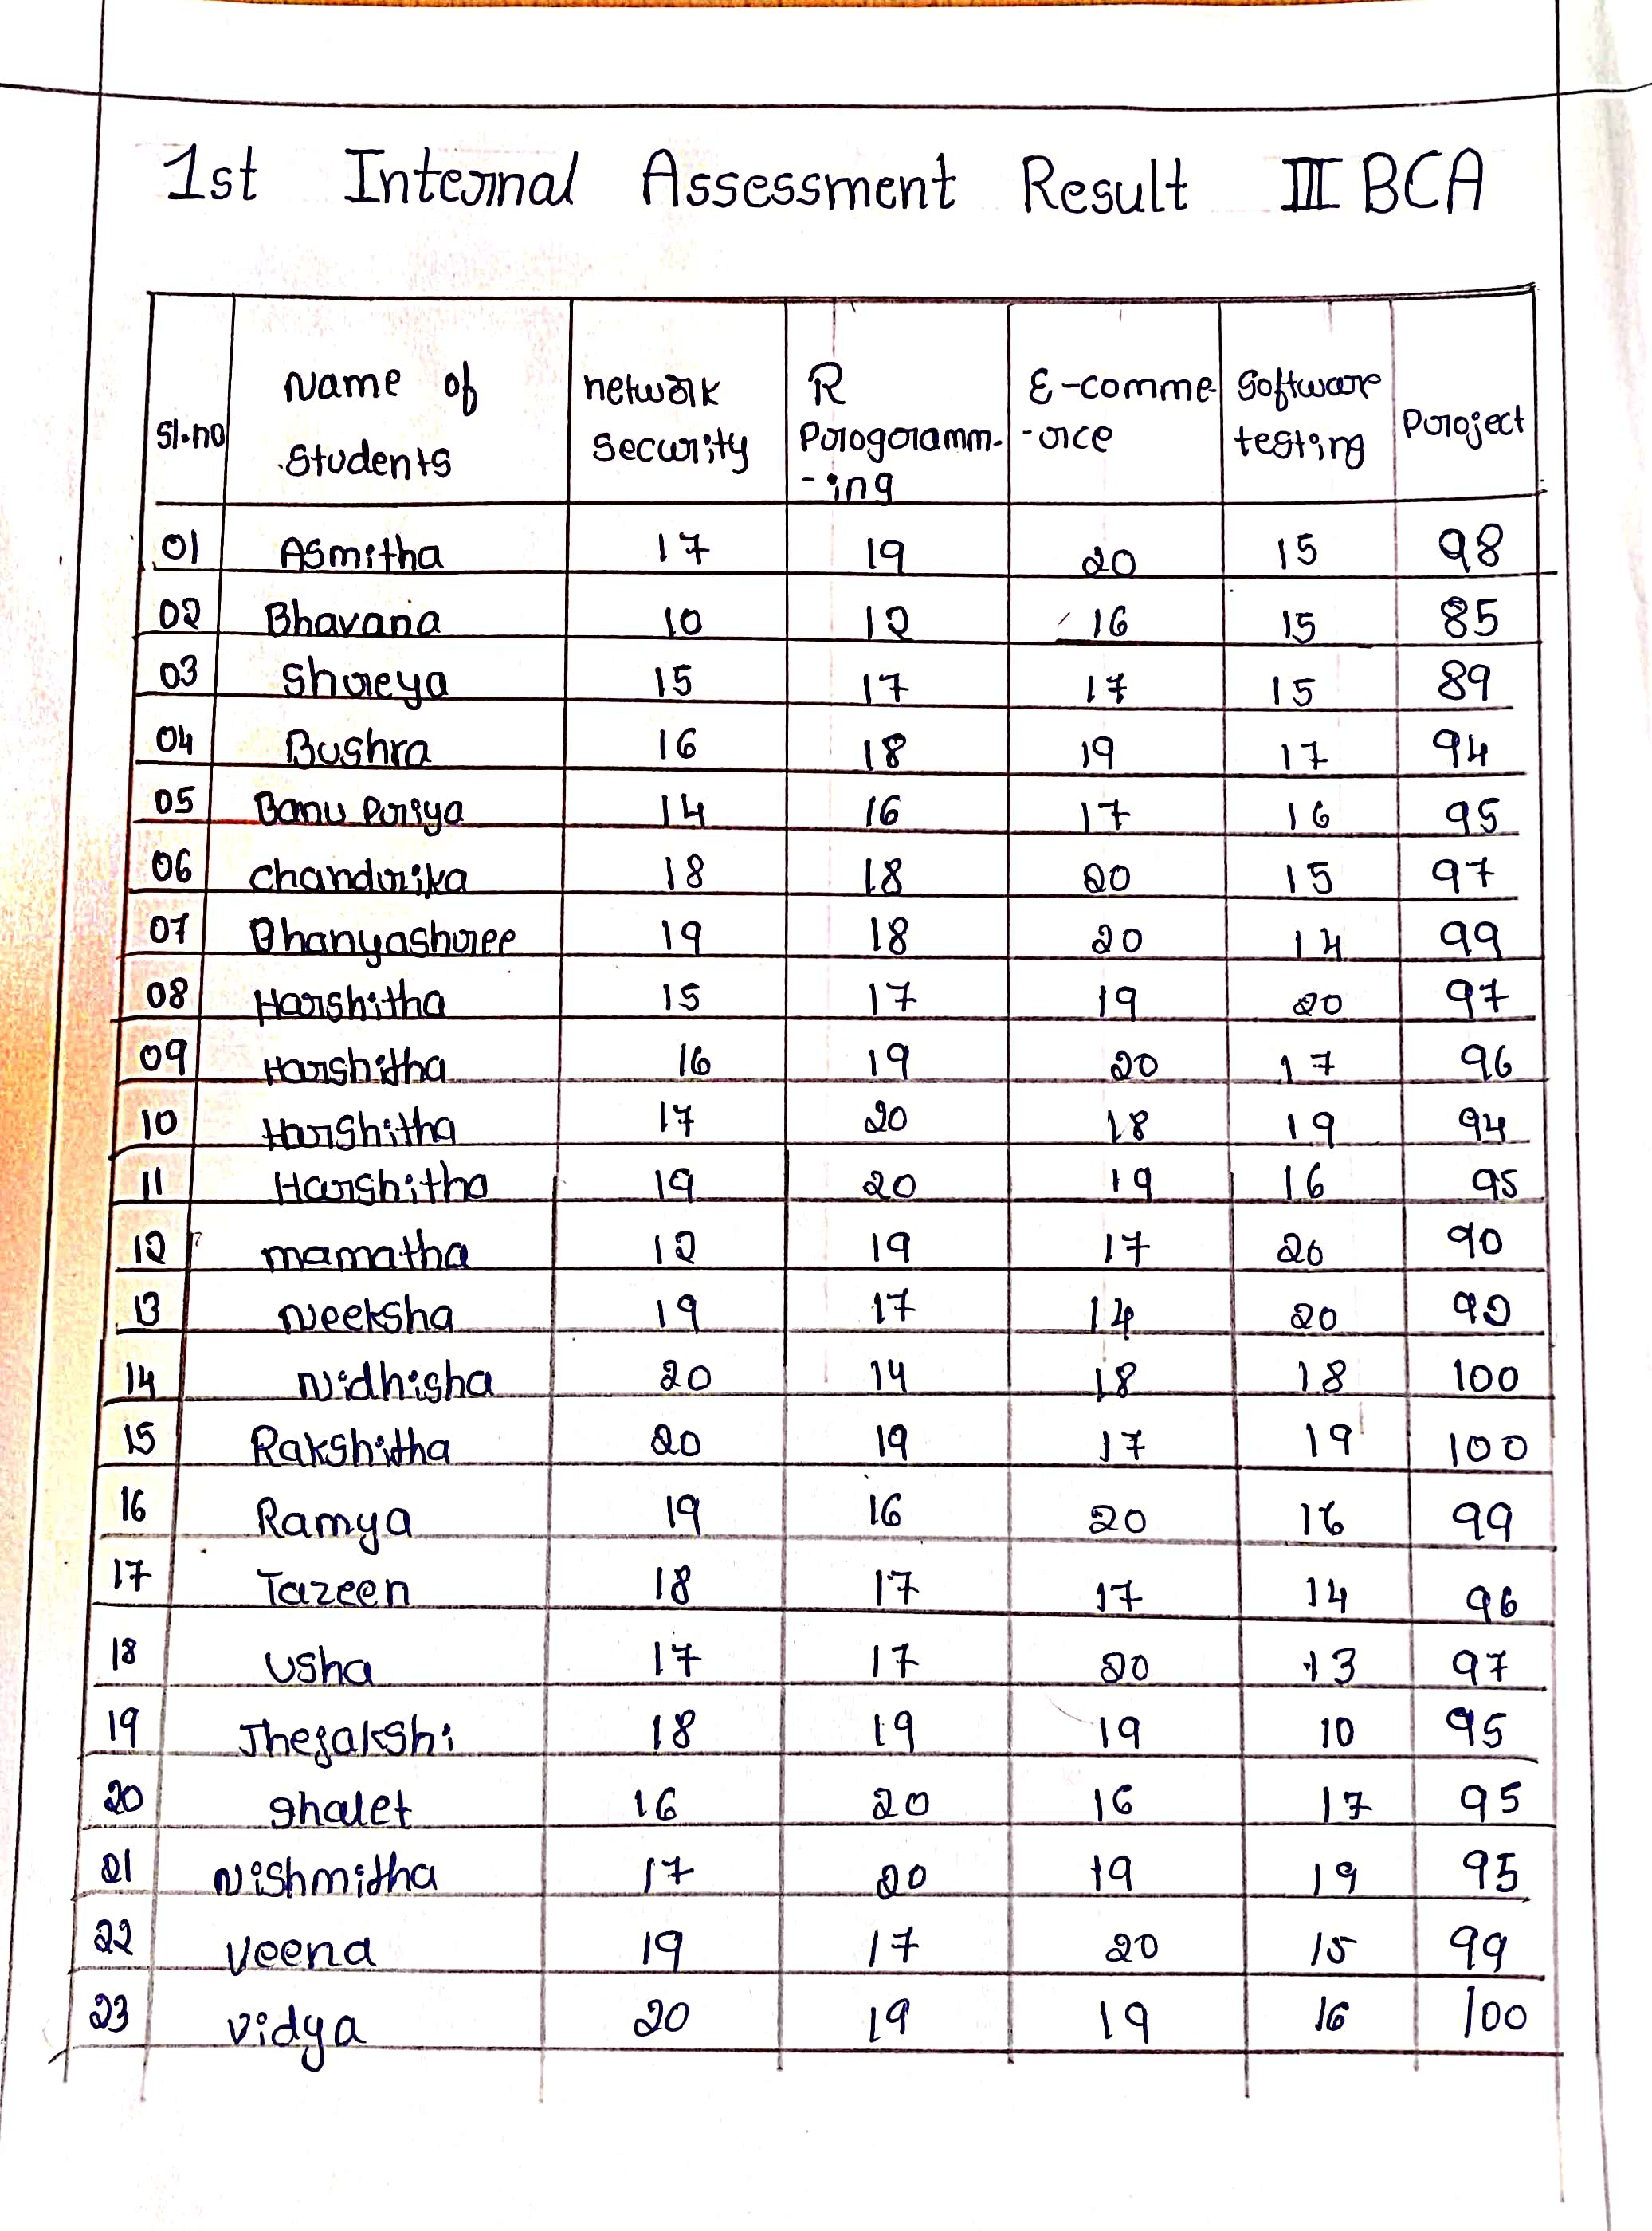 1st Internal Assessment Result III BCA
Sl.no Name of Students network security R Programm--ing E-comme--rce Software testing Project
01 Asmitha 17 19 20 15 98
02 Bhavana 10 12 16 15 85
03 Shreya 15 17 17 15 89
04 Bushra 16 18 19 17 94
05 Banu Priya 14 16 17 16 95
06 Chandrika 18 18 20 15 97
07 Dhanyashree 19 18 20 14 99
08 Harshitha 15 17 19 20 97
09 Harshitha 16 19 20 17 96
10 Harshitha 17 20 18 19 94
11 Harshitha 19 20 19 16 95
12 mamatha 12 19 17 20 90
13 Neeksha 19 17 14 20 92
14 Nidhisha 20 14 18 18 100
15 Rakshitha 20 19 17 19 100
16 Ramya 19 16 20 16 99
17 Tazeen 18 17 17 14 96
18 Usha 17 17 20 13 97
19 Thejakshi 18 19 19 10 95
20 Shalet 16 20 16 17 95
21 Nishmitha 17 20 19 19 95
22 Veena 19 17 20 15 99
23 Vidya 20 19 19 16 100